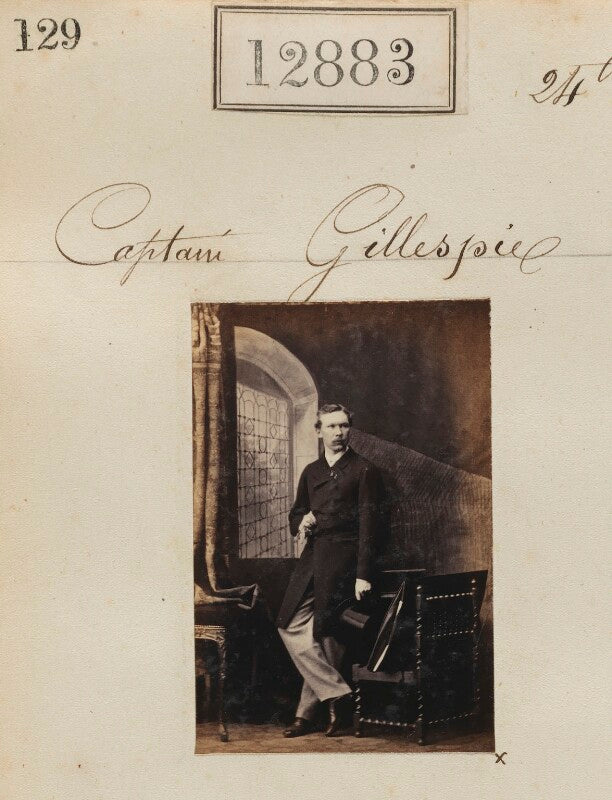 129
12883
24t
Captain Gillespie
x